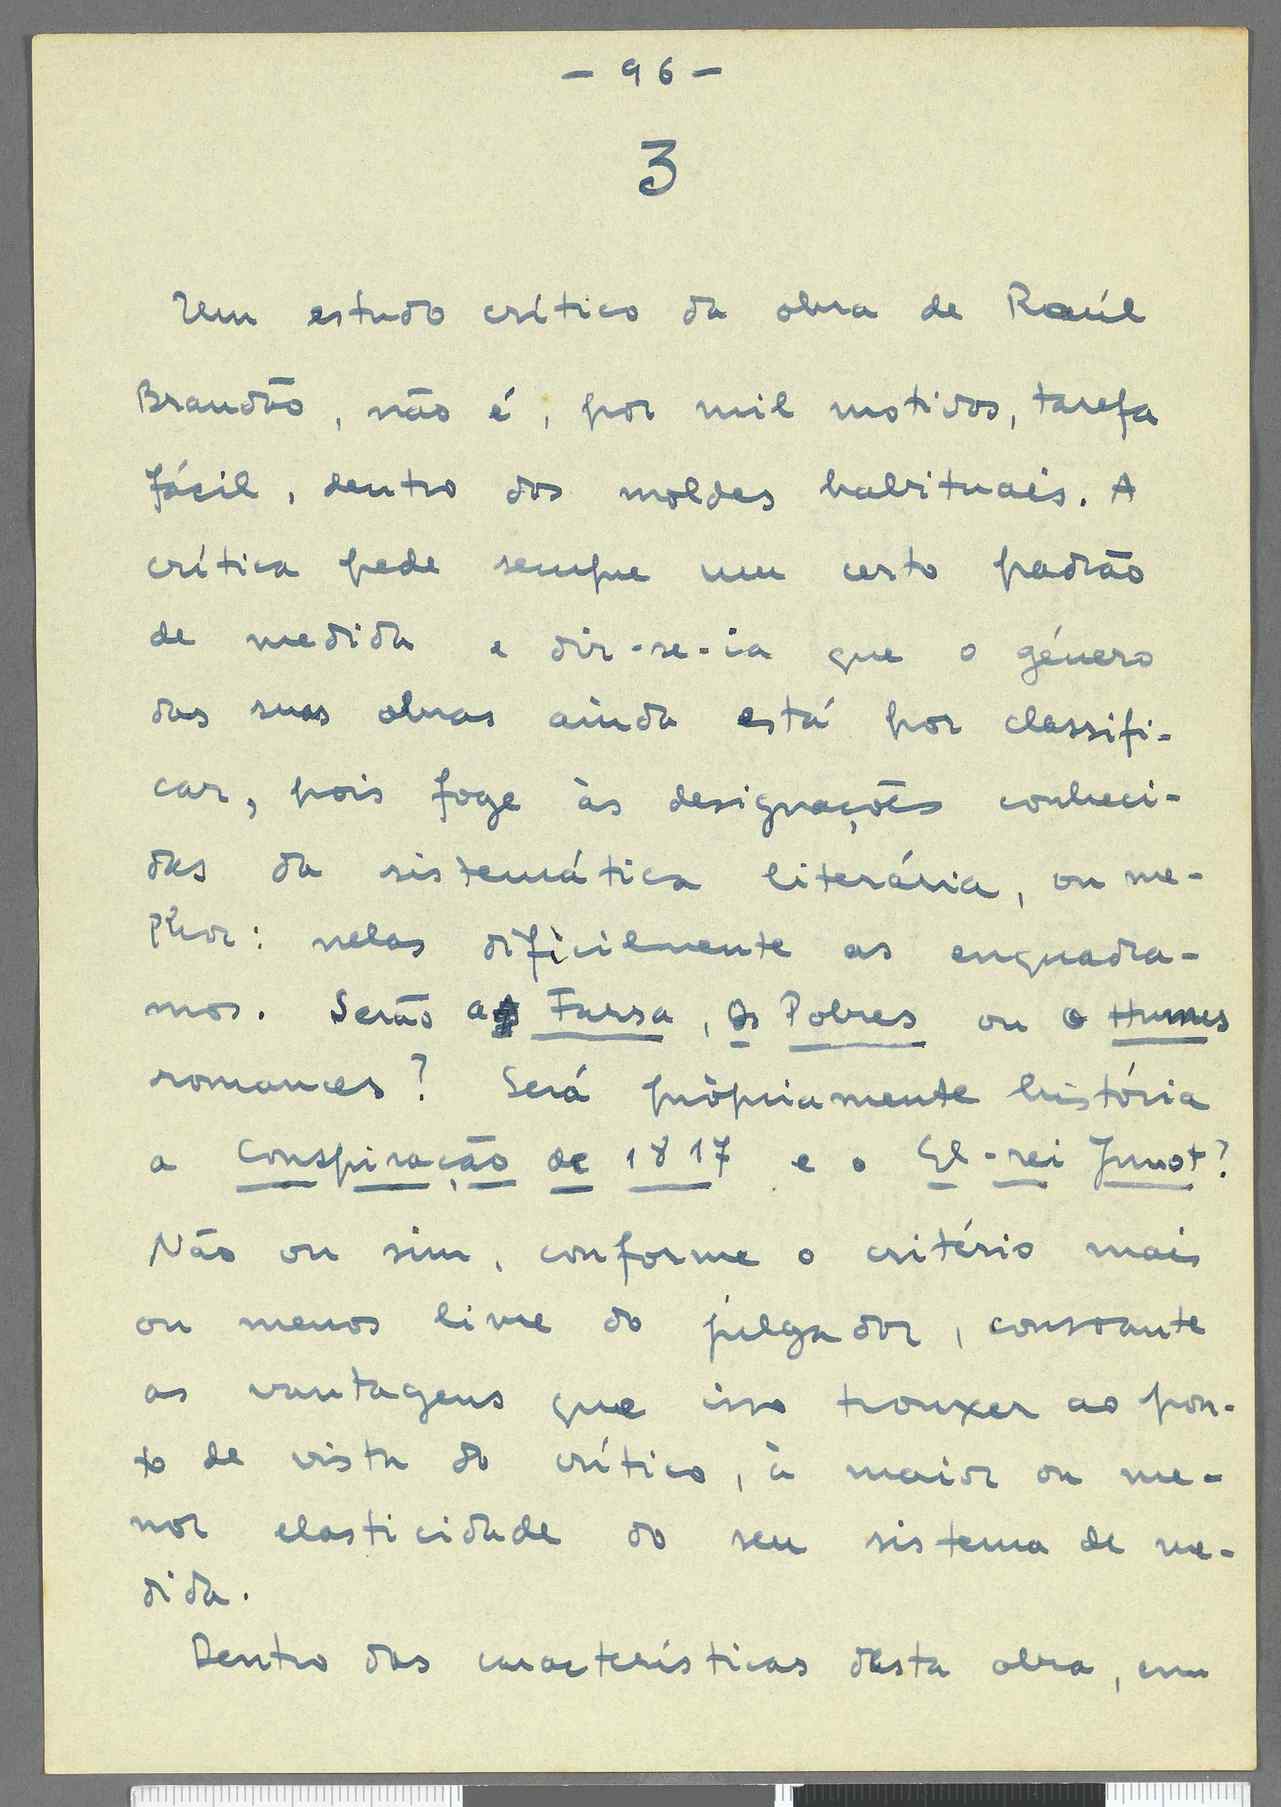 - 96 -
3
Um estudo crítico da obra de Raúl
Brandão, não é, por mil motivos, tarefa
fácil, dentro dos moldes habituais. A
crítica pede sempre um certo padrão
de medida e dir-se-ia que o género
das suas obras ainda está por classifi-
car, pois foge às designações conheci-
das da sistemática literária, ou me-
lhor: nelas dificilmente as enquadra-
mos. Serão a Farsa, Os Pobres ou o Humus
romances? Será pròpriamente história
a Conspiração de 1817 e o El-rei Junot?
Não ou sim, conforme o critério mais
ou menos livre do julgador, consoante
as vantagens que isso trouxer ao pon-
to de vista do crítico, à maior ou me-
nor elasticidade do seu sistema de me-
dida.
Dentro das características desta obra, em